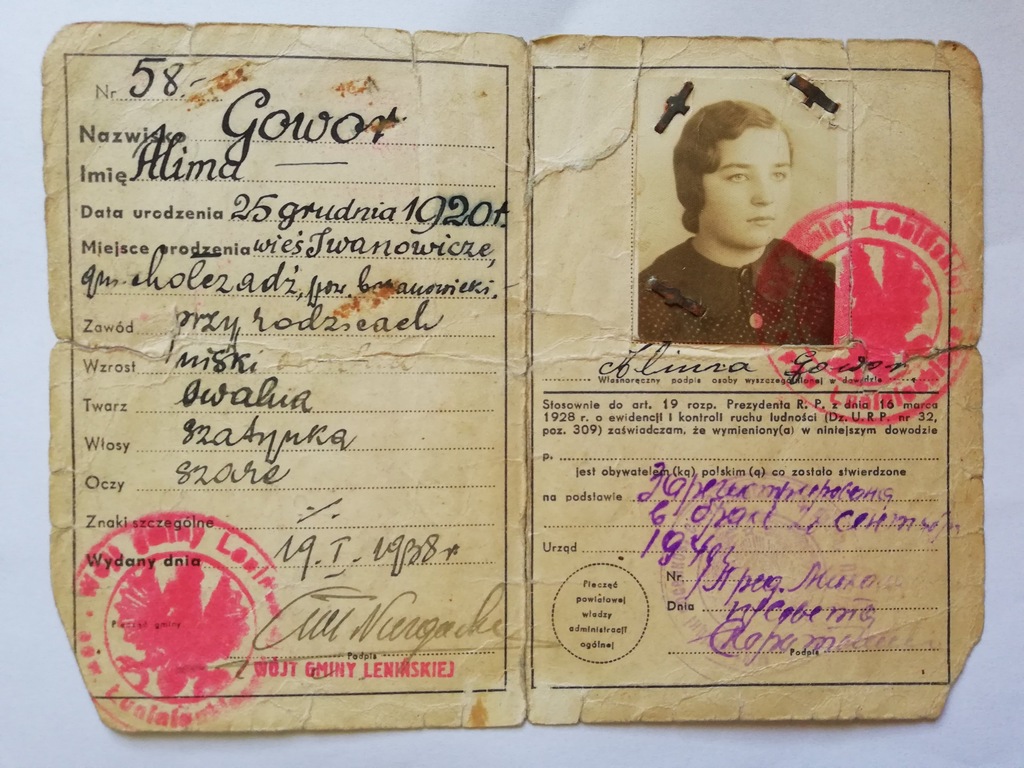 Nr. 58.-
Nazwisko Gowor
Imię Alima
Data urodzenia 25 grudnia 1920 r.
Miejsce urodzenia wieś Iwanowicze,
gm. pow.
Zawód przy rodzicach
Wzrost niski
Twarz owalna
Włosy szatynka
Oczy szare
Znaki szczególne ./.
Wydany dnia 19. I. 1938 r
Pieczęć gminy
Podpis
WÓJT GMINY LENIŃSKIEJ
Wójt Gminy Lenińskiej
Alima Gowor
Własnoręczny podpis osoby wyszczególnionej w dowodzie
Stosownie do art. 19 rozp. Prezydenta R. P. z dnia 16 marca
1928 r. o ewidencji i kontroli ruchu ludności (Dz. U R P. nr 32,
poz. 309) zaświadczam, że wymieniony(a) w niniejszym dowodzie
p.
jest obywatelem(ką) polskim(ą) co zostało stwierdzone
na podstawie
в браке сентября
Urząd 1940г
Nr.
Dnia
Podpis
Pieczęć
powiatowej
władzy
administracji
ogólnej